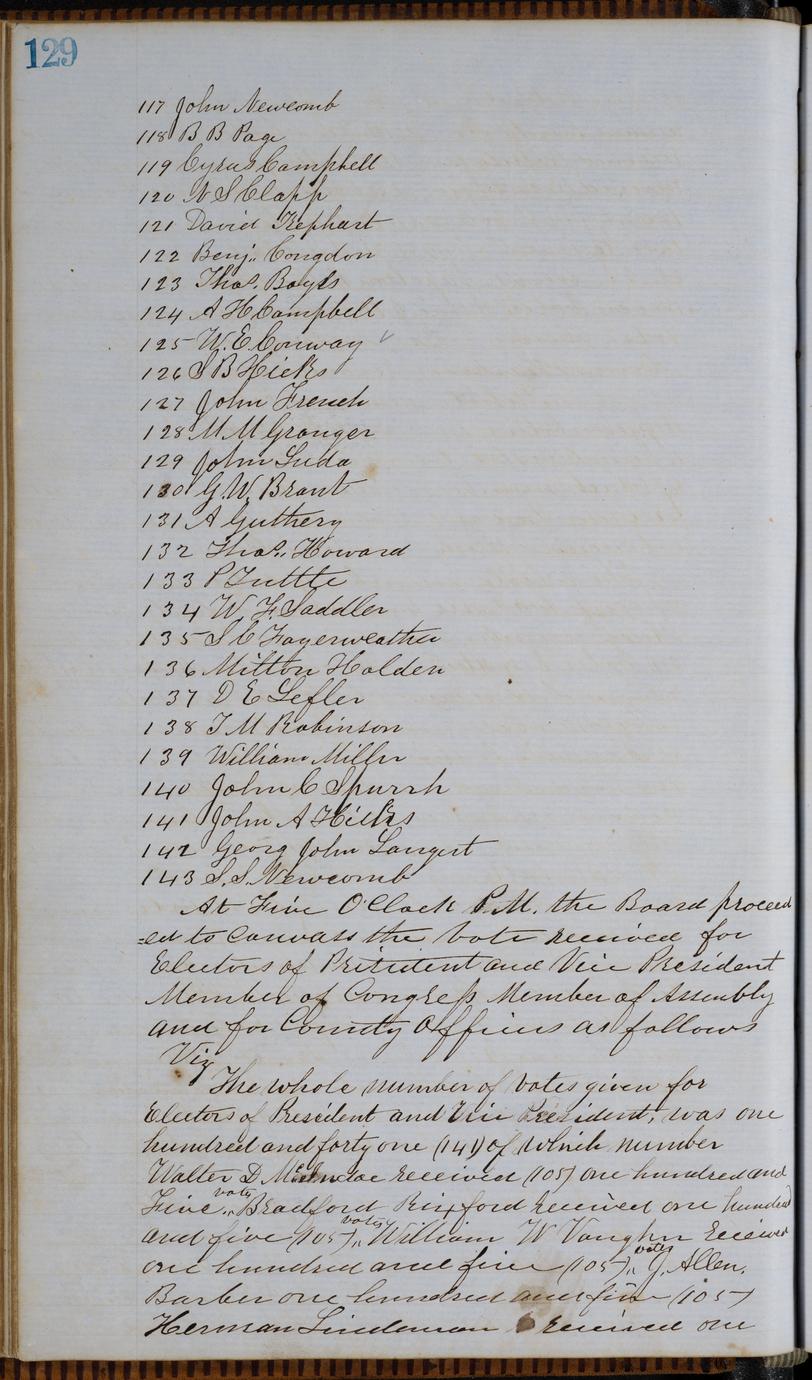 129
117 John Newcomb
118 B B Page
119 Cyrus Campbell
120 N S Clapp
121 David Kephart
122 Benj. Congdon
123 Thos. Bayls
124 A H Campbell
125 W. E. Conway
126 S B Hicks
127 John French
128 M M Granger
129 John Luda
130 G W. Brant
131 A Guthery
132 Thos. Howard
133 P Tuttle
134 W. F. Saddler
135 S C Fayerweather
136 Milton Holden
137 D E Lefler
138 T M Robinson
139 William Miller
140 John C Spurrh
141 John A Hicks
142 Georg John Langert
143 S. S. Newcomb
At Five O'Clock P.M. the Board proceed
=ed to canvass the vote received for
Electors of President and Vice President
Member of Congress Member of Assembly
and for County Officers as follows
Viz
The whole number of votes given for
Electors of President and Vice President, was one
hundred and forty one (141) of which number
Walter D. received (105) one hundred and
Five votes, Bradford Rixford received one hundred
and five (105) votes, William W Vaughn received
one hundred and five (105) votes, J. Allen.
Barber one hundred and five (105)
Herman Lindeman received one